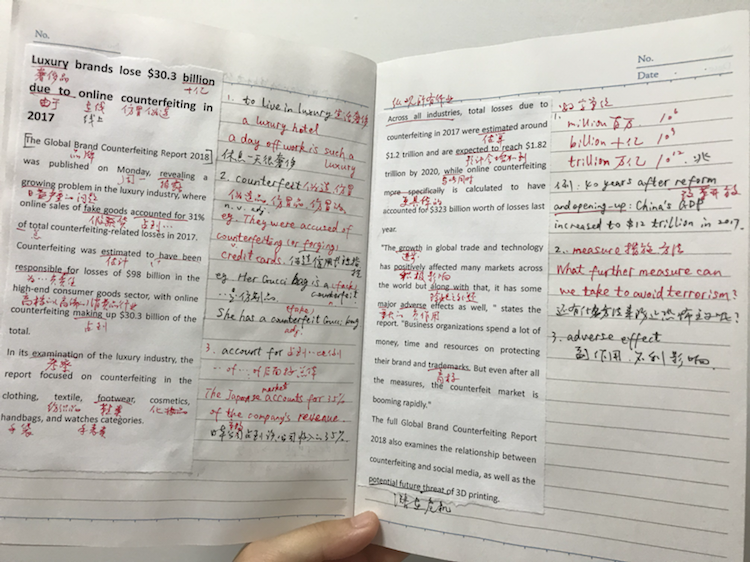 No.
Luxury brands lose $30.3 billion
奢侈品 十亿
due to online counterfeiting in
由于 线上 仿冒伪造
2017
The Global Brand Counterfeiting Report 2018
品牌
was published on Monday, revealing a
growing problem in the luxury industry, where
日益严重的问题
online sales of fake goods accounted for 31%
假冒货 占到…
of total counterfeiting-related losses in 2017.
Counterfeiting was estimated to have been
估计
responsible for losses of $98 billion in the
为…负责任
high-end consumer goods sector, with online
counterfeiting making up $30.3 billion of the
占到
total.
In its examination of the luxury industry, the
考察
report focused on counterfeiting in the
clothing, textile, footwear, cosmetics,
纺织品 鞋类 化妆品
handbags, and watches categories.
手袋 手表类
1. to live in luxury 生活奢侈
a luxury hotel
a day off work is such a
luxury
休息一天很奢侈
2. counterfeit 伪造 仿冒
n. v. adj.
eg. They were accused of
counterfeiting (or forging)
credit cards.
eg. Her Gucci bag is a fake/
counterfeit
n.
…is 仿制品
(fake)
She has a counterfeit Gucci bag
adj.
3. account for 占到
The Japanese market accounts for 35%
of the company's revenue
No.
Date
Across all industries, total losses due to
counterfeiting in 2017 were estimated around
估算
$1.2 trillion and are expected to reach $1.82
预计会达到
trillion by 2020, while online counterfeiting
与此同时
more specifically is calculated to have
更具体的
accounted for $323 billion worth of losses last
year.
"The growth in global trade and technology
has positively affected many markets across
积极影响
the world but along with that, it has some
除此之外
major adverse effects as well, " states the
report. "Business organizations spend a lot of
money, time and resources on protecting
their brand and trademarks. But even after all
商标
the measures, the counterfeit market is
booming rapidly."
The full Global Brand Counterfeiting Report
2018 also examines the relationship between
counterfeiting and social media, as well as the
potential future threat of 3D printing.
潜在危机
数字单位
1.
million 百万 10⁶
billion 十亿 10⁹
trillion 万亿 10¹² 兆
例: 40 years after reform
改革开放
and opening-up: China's GDP
increased to $12 trillion in 2017.
2. measure 措施 方法
What further measure can
we take to avoid terrorism?
3. adverse effect
副作用 不利影响